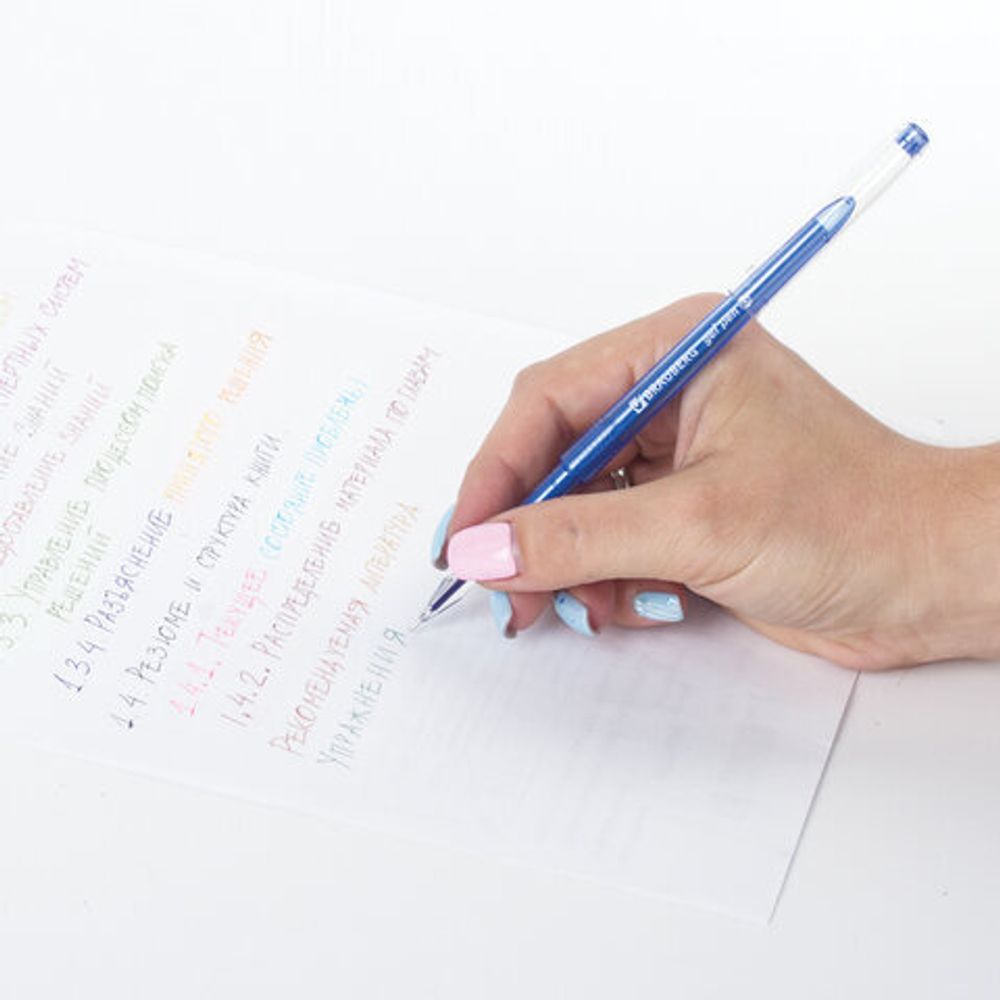 ПЕРТНЫХ СИСТЕМ
НИЕ ЗНАНИЙ
ПРЕДСТАВЛЕНИЕ ЗНАНИЙ
3 3 УПРАВЛЕНИЕ ПРОЦЕССОМ ПОИСКА
РЕШЕНИЙ
1 3 4 РАЗЪЯСНЕНИЕ ПРИНЯТОГО РЕШЕНИЯ
1 4 РЕЗЮМЕ И СТРУКТУРА КНИГИ
1.4.1. ТЕКУЩЕЕ СОСТОЯНИЕ ПРОБЛЕМЫ
1.4.2. РАСПРЕДЕЛЕНИЕ МАТЕРИАЛА ПО ГЛАВАМ
РЕКОМЕНДУЕМАЯ ЛИТЕРАТУРА
УПРАЖНЕНИЯ
BRAUBERG gel pen